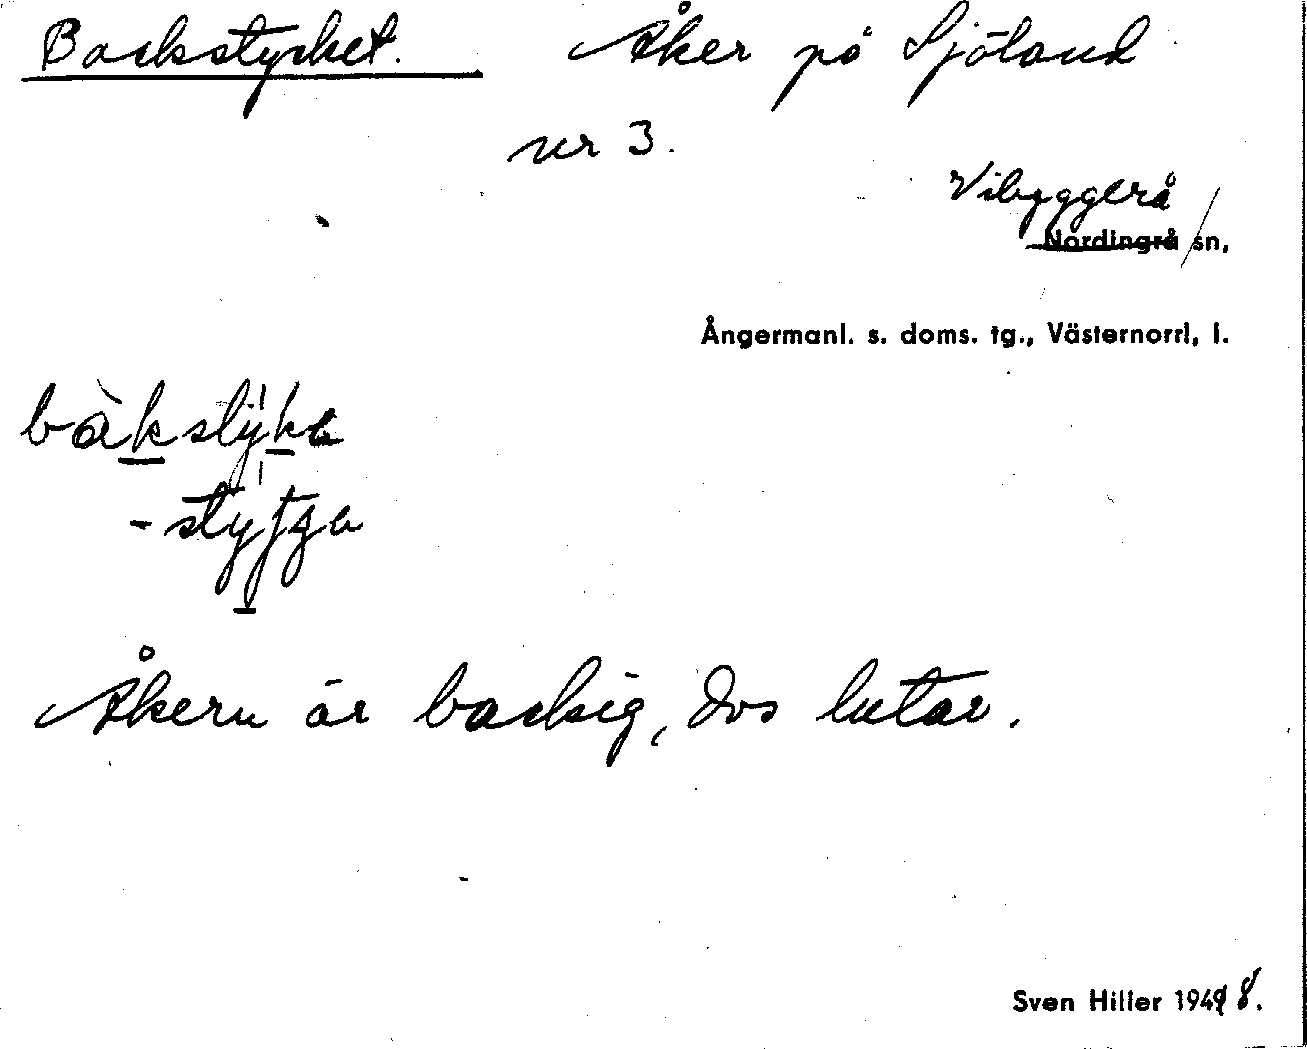 Backstycket. Åker på Sjöland
nr 3.
Vibyggerå
Nordingrå sn,
Ångermanl. s. doms. tg., Västernorrl, l.
bàkstyka
-sty̍tga
Åkern är backig, dvs lutar.
Sven Hiller 1948.